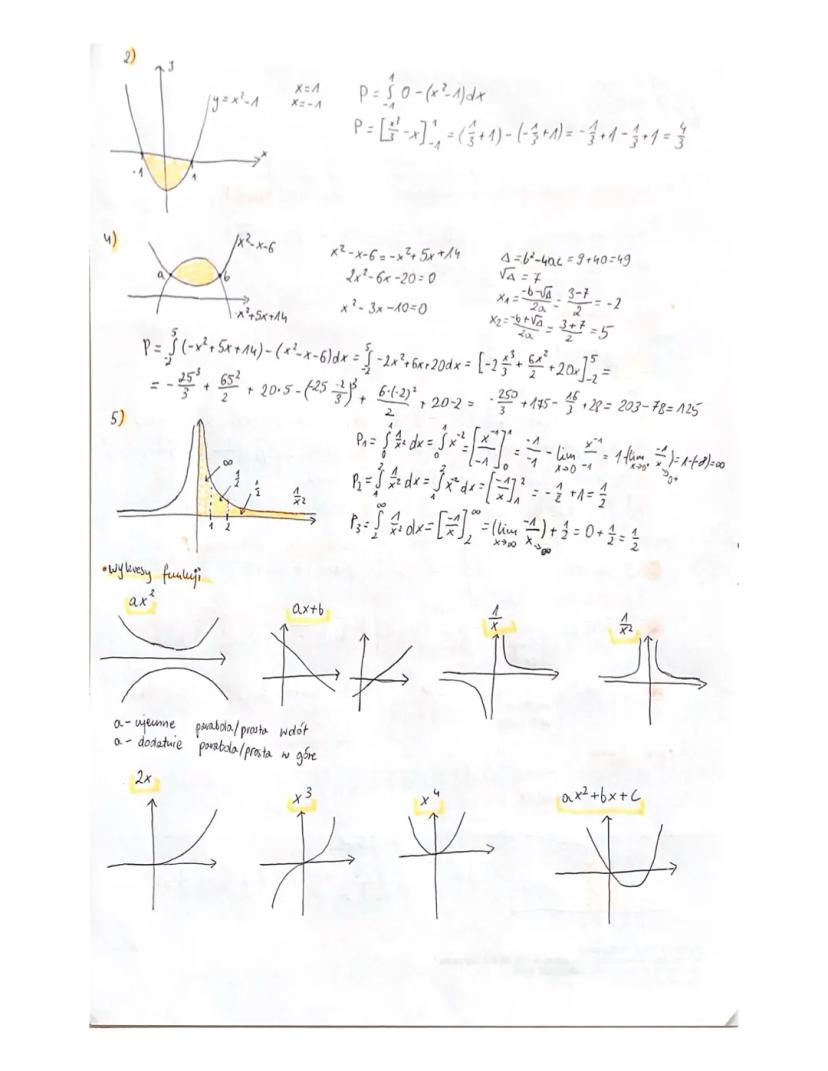 2)
y
y = x²-1
x=1
x=-1
-1 1 x
P = ∫₋₁¹ 0 - (x²-1)dx
P = [x³/3 - x]₋₁¹ = (1/3 + 1) - (-1/3 + 1) = -1/3 + 1 - 1/3 + 1 = 4/3
4)
x²-x-6
a b
-x²+5x+14
x²-x-6 = -x²+5x+14
2x²-6x-20=0
x²-3x-10=0
Δ=b²-4ac = 9+40=49
√Δ = 7
x₁ = (-b-√Δ)/2a = (3-7)/2 = -2
x₂ = (-b+√Δ)/2a = (3+7)/2 = 5
P = ∫₋₂⁵ (-x²+5x+14) - (x²-x-6)dx = ∫₋₂⁵ -2x²+6x+20dx = [-2 x³/3 + 6x²/2 + 20x]₋₂⁵ =
20·5
6·(-2)²/2 + 20-2 = -250/3 + 175 - 16/3 + 28 = 203-78 = 125
5)
∞ 1/2 1/2 1/x²
1 2
P₁ = ∫₀¹ 1/x² dx = ∫₀¹ x⁻² = [x⁻¹/-1]₀¹ = -1/-1 - lim x→0 x⁻¹/-1
P₂ = ∫₁² 1/x² dx = ∫₁² x⁻² dx = [-1/x]₁² = -1/2 + 1 = 1/2
P₃ = ∫₂^∞ 1/x² dx = [-1/x]₂^∞ = (lim x→∞ -1/x) + 1/2 = 0 + 1/2 = 1/2
• wykresy funkcji
ax² ax+b 1/x 1/x²
a - ujemne parabola/prosta w dół
a - dodatnie parabola/prosta w górę
2x x³ x⁴ ax²+bx+c